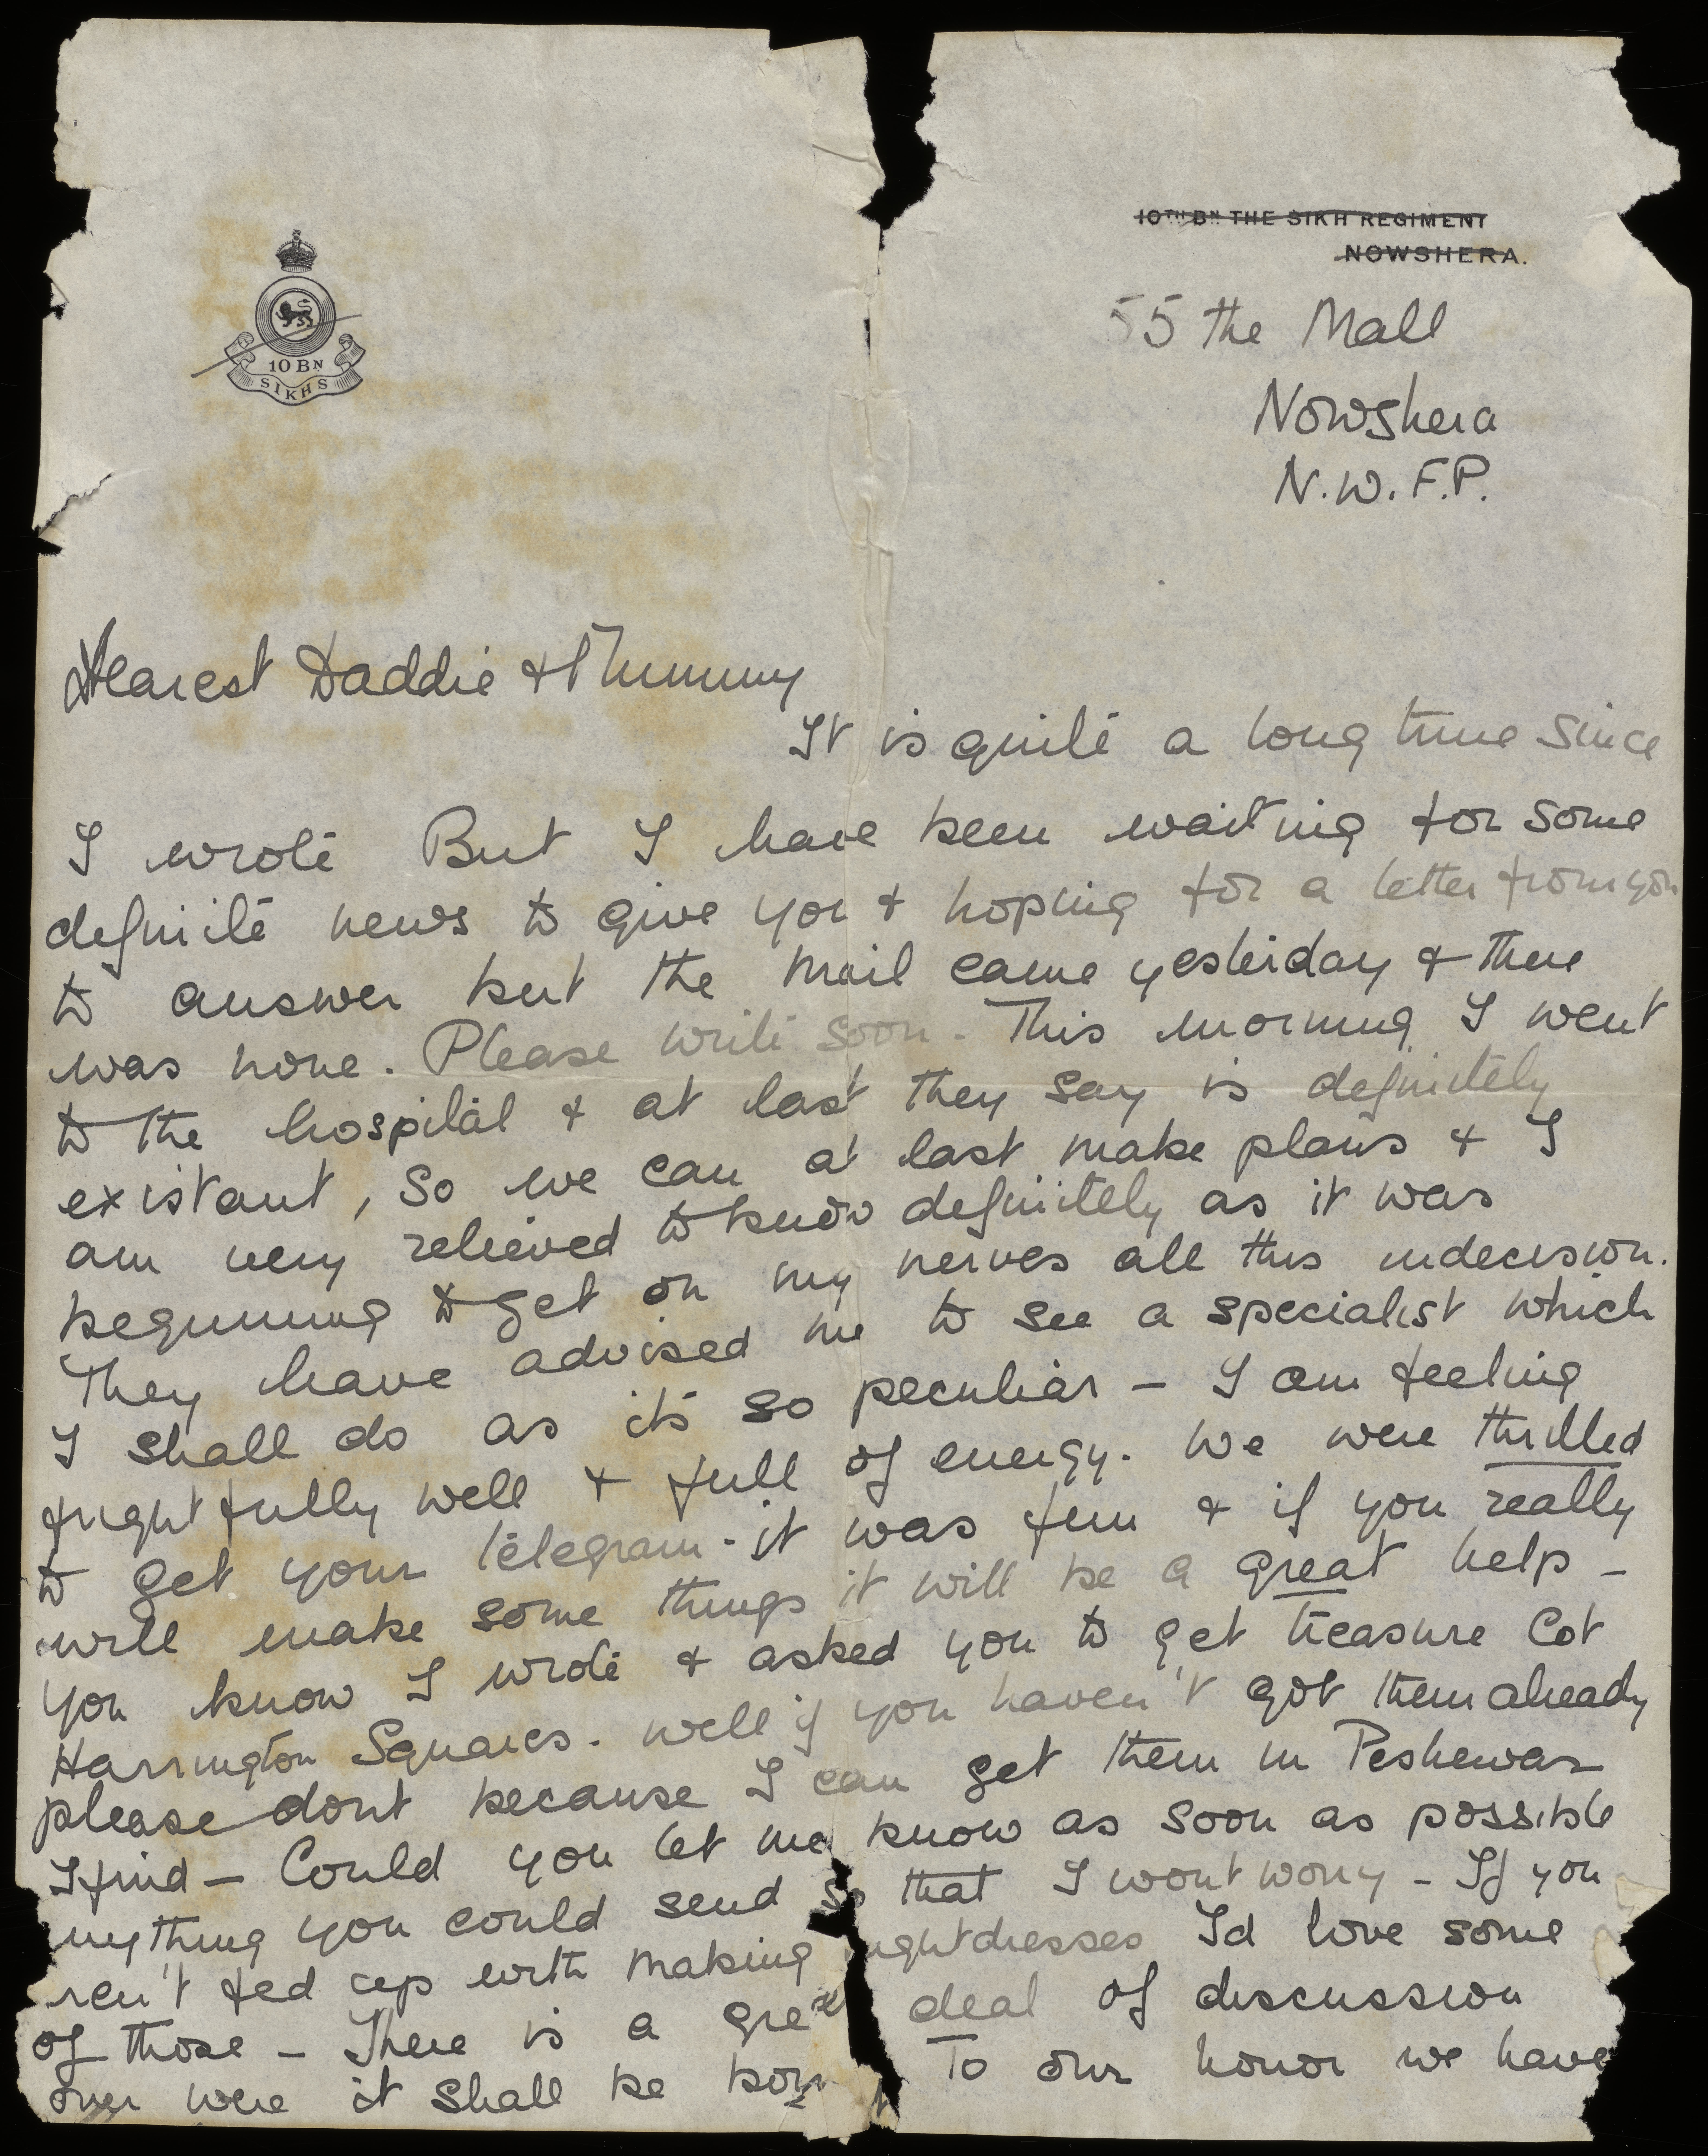 10TH BN THE SIKH REGIMENT
NOWSHERA.
10 BN
SIKHS
55 the Mall
Nowshera
N.W.F.P.
Dearest Daddie & Mummy
It is quite a long time since
I wrote But I have been waiting for some
definite news to give you & hoping for a letter from you
to answer but the mail came yesterday & there
was none. Please write soon. This morning I went
to the hospital & at last they say is definitely
existant, so we can at last make plans & I
am very relieved to know definitely as it was
beginning to get on my nerves all this indecision.
They have advised me to see a specialist which
I shall do as its so peculiar - I am feeling
frightfully well & full of energy. We were thrilled
to get your telegram - it was fun & if you really
will make some things it will be a great help -
You know I wrote & asked you to get treasure Cot
Harrington Squares. Well if you haven't got them already
please dont because I can get them in Peshewar
I find - Could you let me know as soon as possible
anything you could send so that I wont worry - If you
ren't fed up with making nightdresses I'd love some
of those - There is a great deal of discussion
over were it shall be born To our honor we have